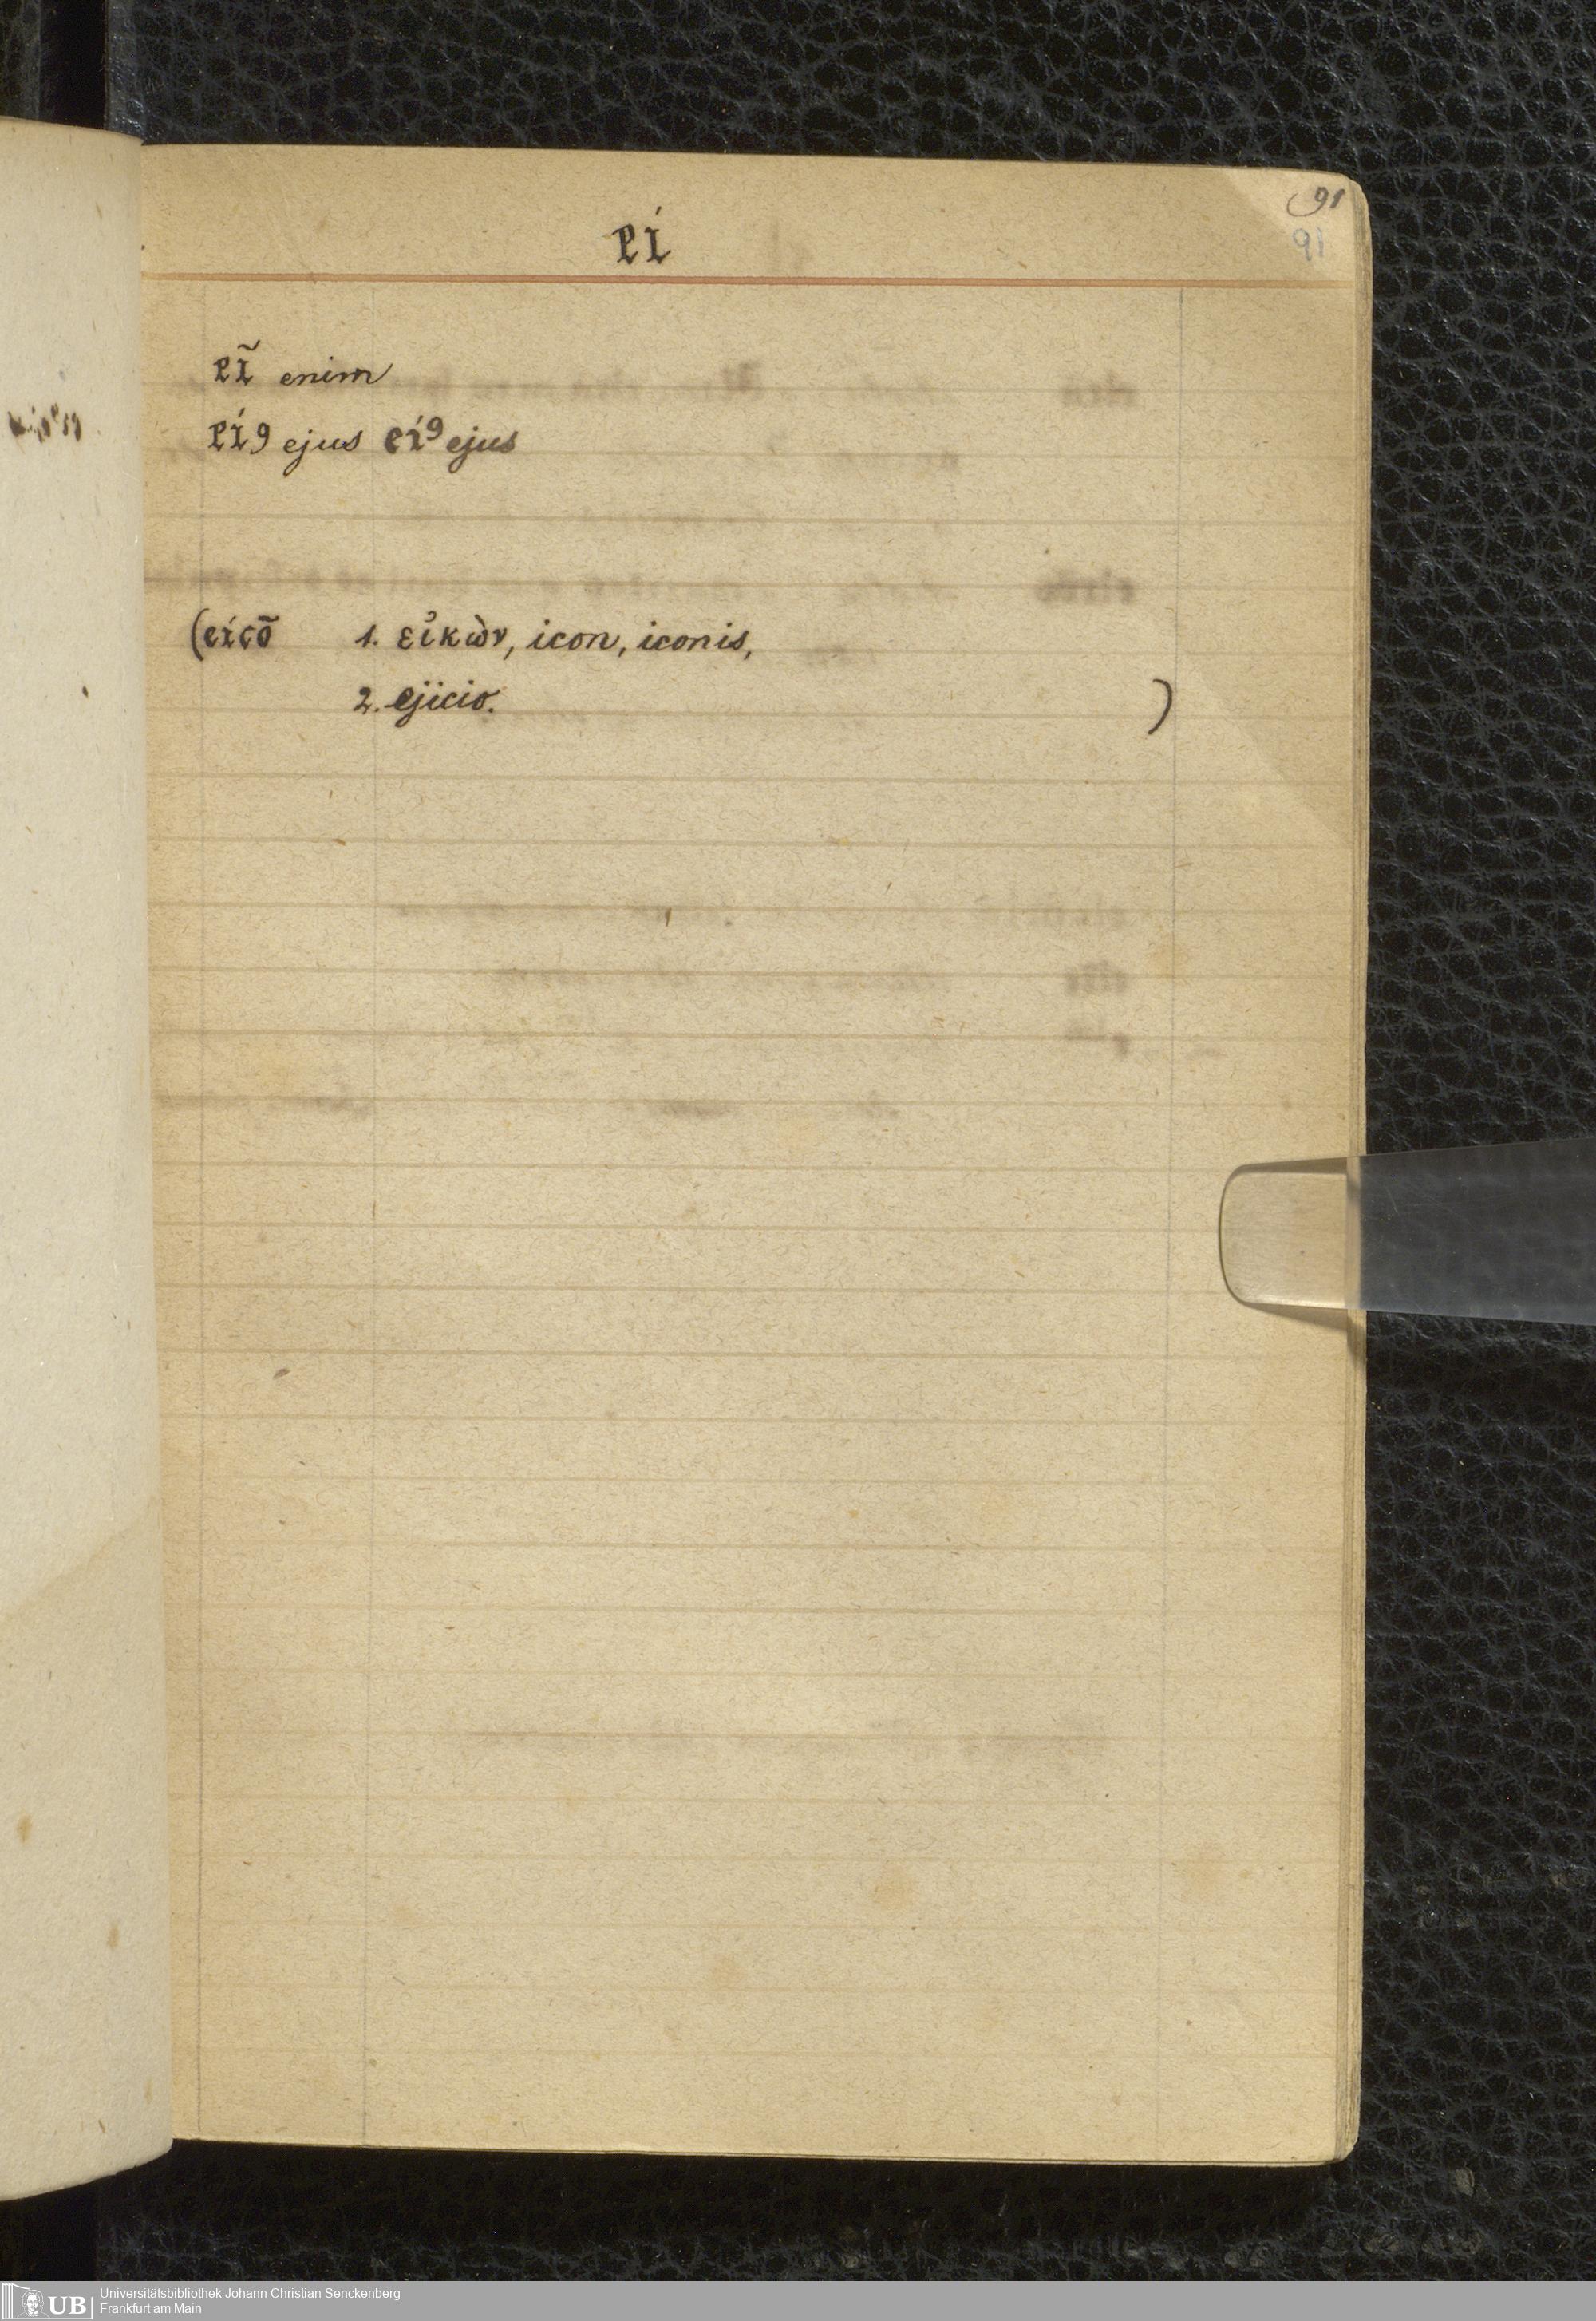 91
91
eí
eĩ enim
eí9 ejus eí⁹ ejus
(eícō 1. εἰκὼν, icon, iconis,
2. ejicio. )
UB Universitätsbibliothek Johann Christian Senckenberg
Frankfurt am Main